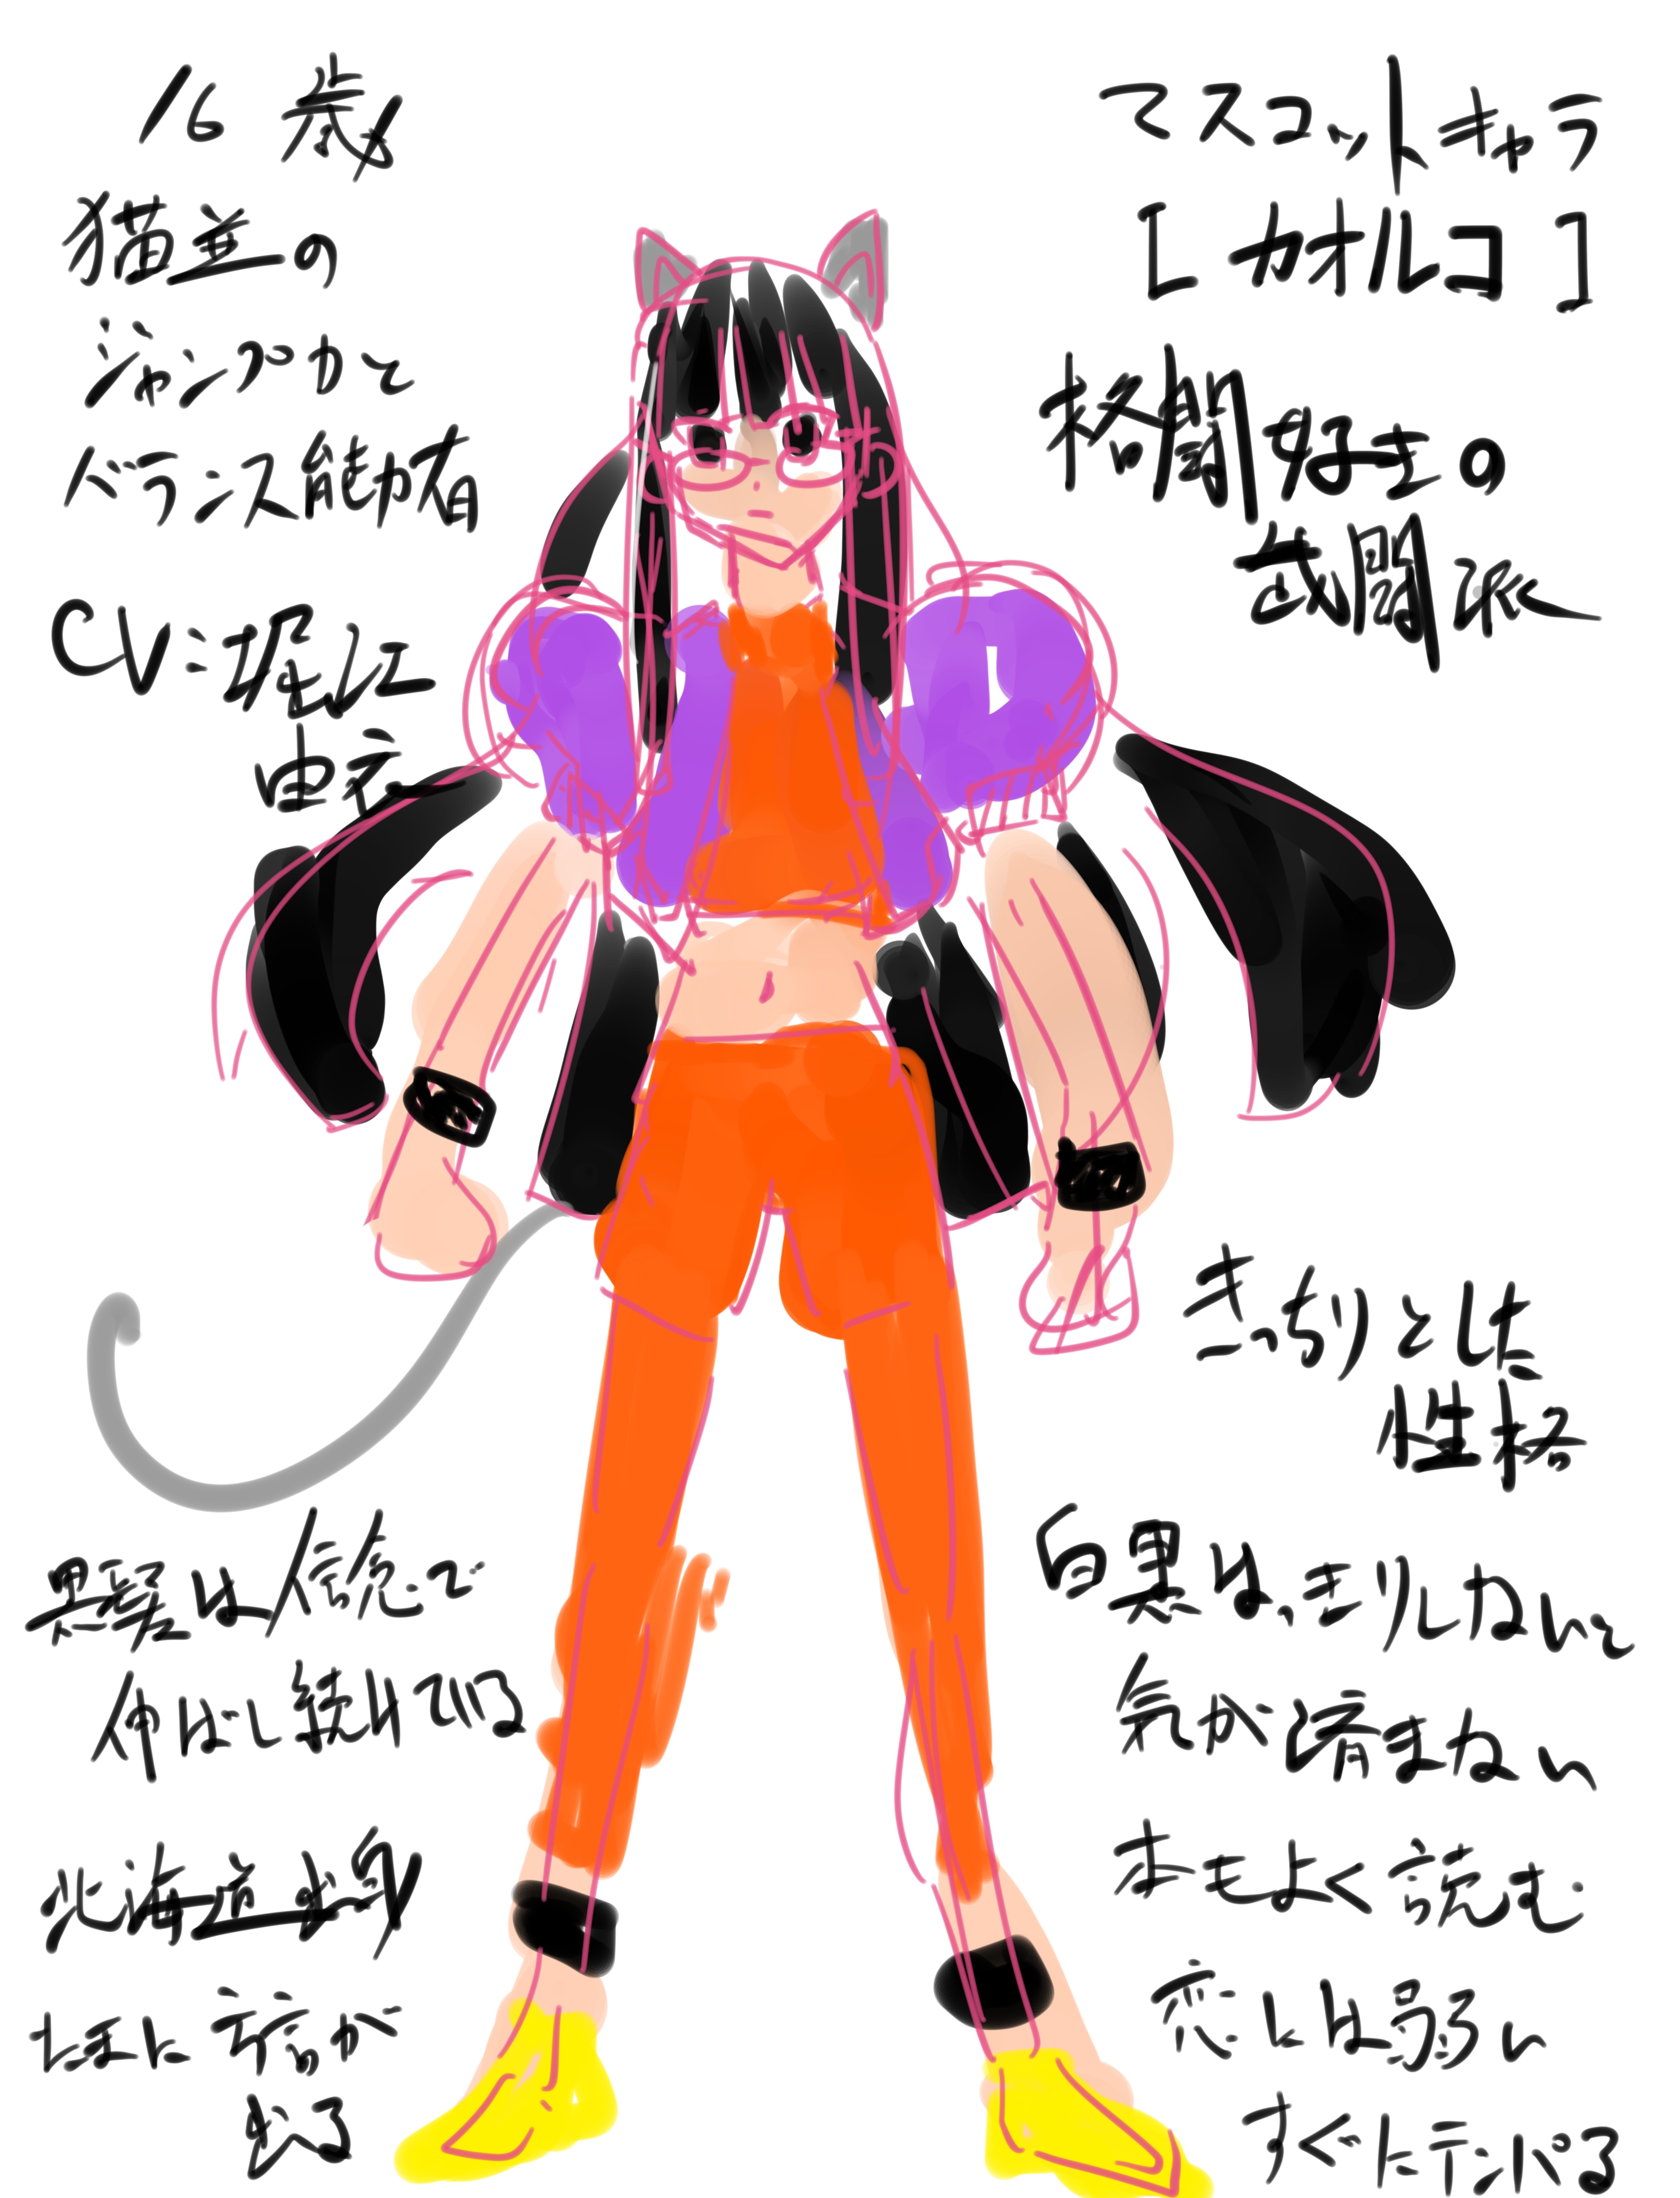 マスコットキャラ
[カオルコ]
格闘好きの
武闘派
16歳
猫並の
ジャンプ力と
バランス能力有
CV:堀江
由衣
きっちりとした
性格
白黒はっきりしないと
気が済まない
本もよく読む
恋には弱い
すぐにテンパる
黒髪は信念で
伸ばし続けている
北海道出身
たまに方言が
出る